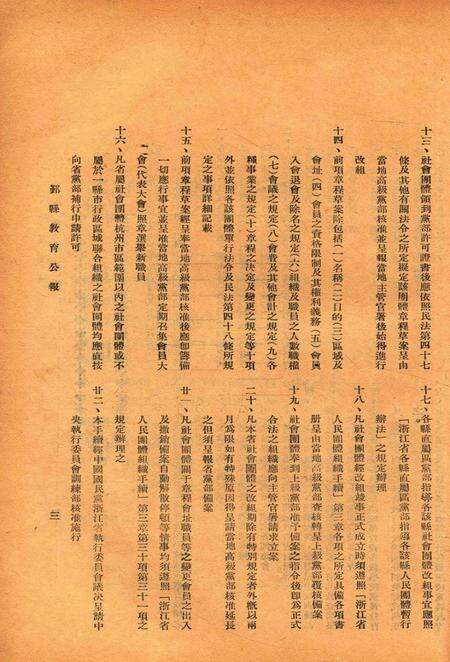 十三、社會團體領到黨部許可證書後應依照民法第四十七
條及其他有關法令之所定擬定該團體章程草案呈由
當地高級黨部核准並呈報當地主管官署後始得進行
改組
十四、前項章程草案除包括(一)名稱(二)目的(三)區域及
會址(四)會員之資格限制及其權利義務(五)會員
入會退會及除名之規定(六)組織及職員之人數職權
(七)會議之規定(八)會費及其他會計之規定(九)各
種事業之規定(十)章程之決定及變更之規定等十項
外並依照各該團體單行法令及民法第四十八條所規
定之事項詳細記載
十五、前項章程草案經呈奉當地高級黨部核准後應即籌備
一切應行事宜並呈准當地高級黨部定期召集會員大
會(代表大會)照章選舉新職員
十六、凡省屬社會團體杭州市區範圍以內之社會團體或不
屬於一縣市行政區域聯合組織之社會團體均應直接
向省黨部補行申請許可
鄞縣教育公報
十七、各縣直屬區黨部指導各該縣社會團體改組事宜應照
「浙江省各縣直屬區黨部指導各該縣人民團體暫行
辦法」之規定辦理
十八、凡社會團體經改組竣事正式成立時須遵照「浙江省
人民團體組織手續」第三章各項之所定具備各項書
册呈由當地高級黨部查核轉呈上級黨部覆核備案
十九、社會團體奉到上級黨部准予備案之指令後即為正式
合法之組織應向主管官署請求立案
二十、凡本省社會團體之改組期除有特別規定者外概以兩
月為限如有特殊原因得呈請當地高級黨部核准延長
之但須呈報省黨部備案
廿一、凡社會團體關于章程會址職員等之變更會員之出入
及撤銷備案自動解散停頓等情事均須遵照「浙江省
人民團體組織手續」第三章第三十項第三十一項之
規定辦理之
廿二、本手續經中國國民黨浙江省執行委員會議決呈請中
央執行委員會訓練部核准施行
三